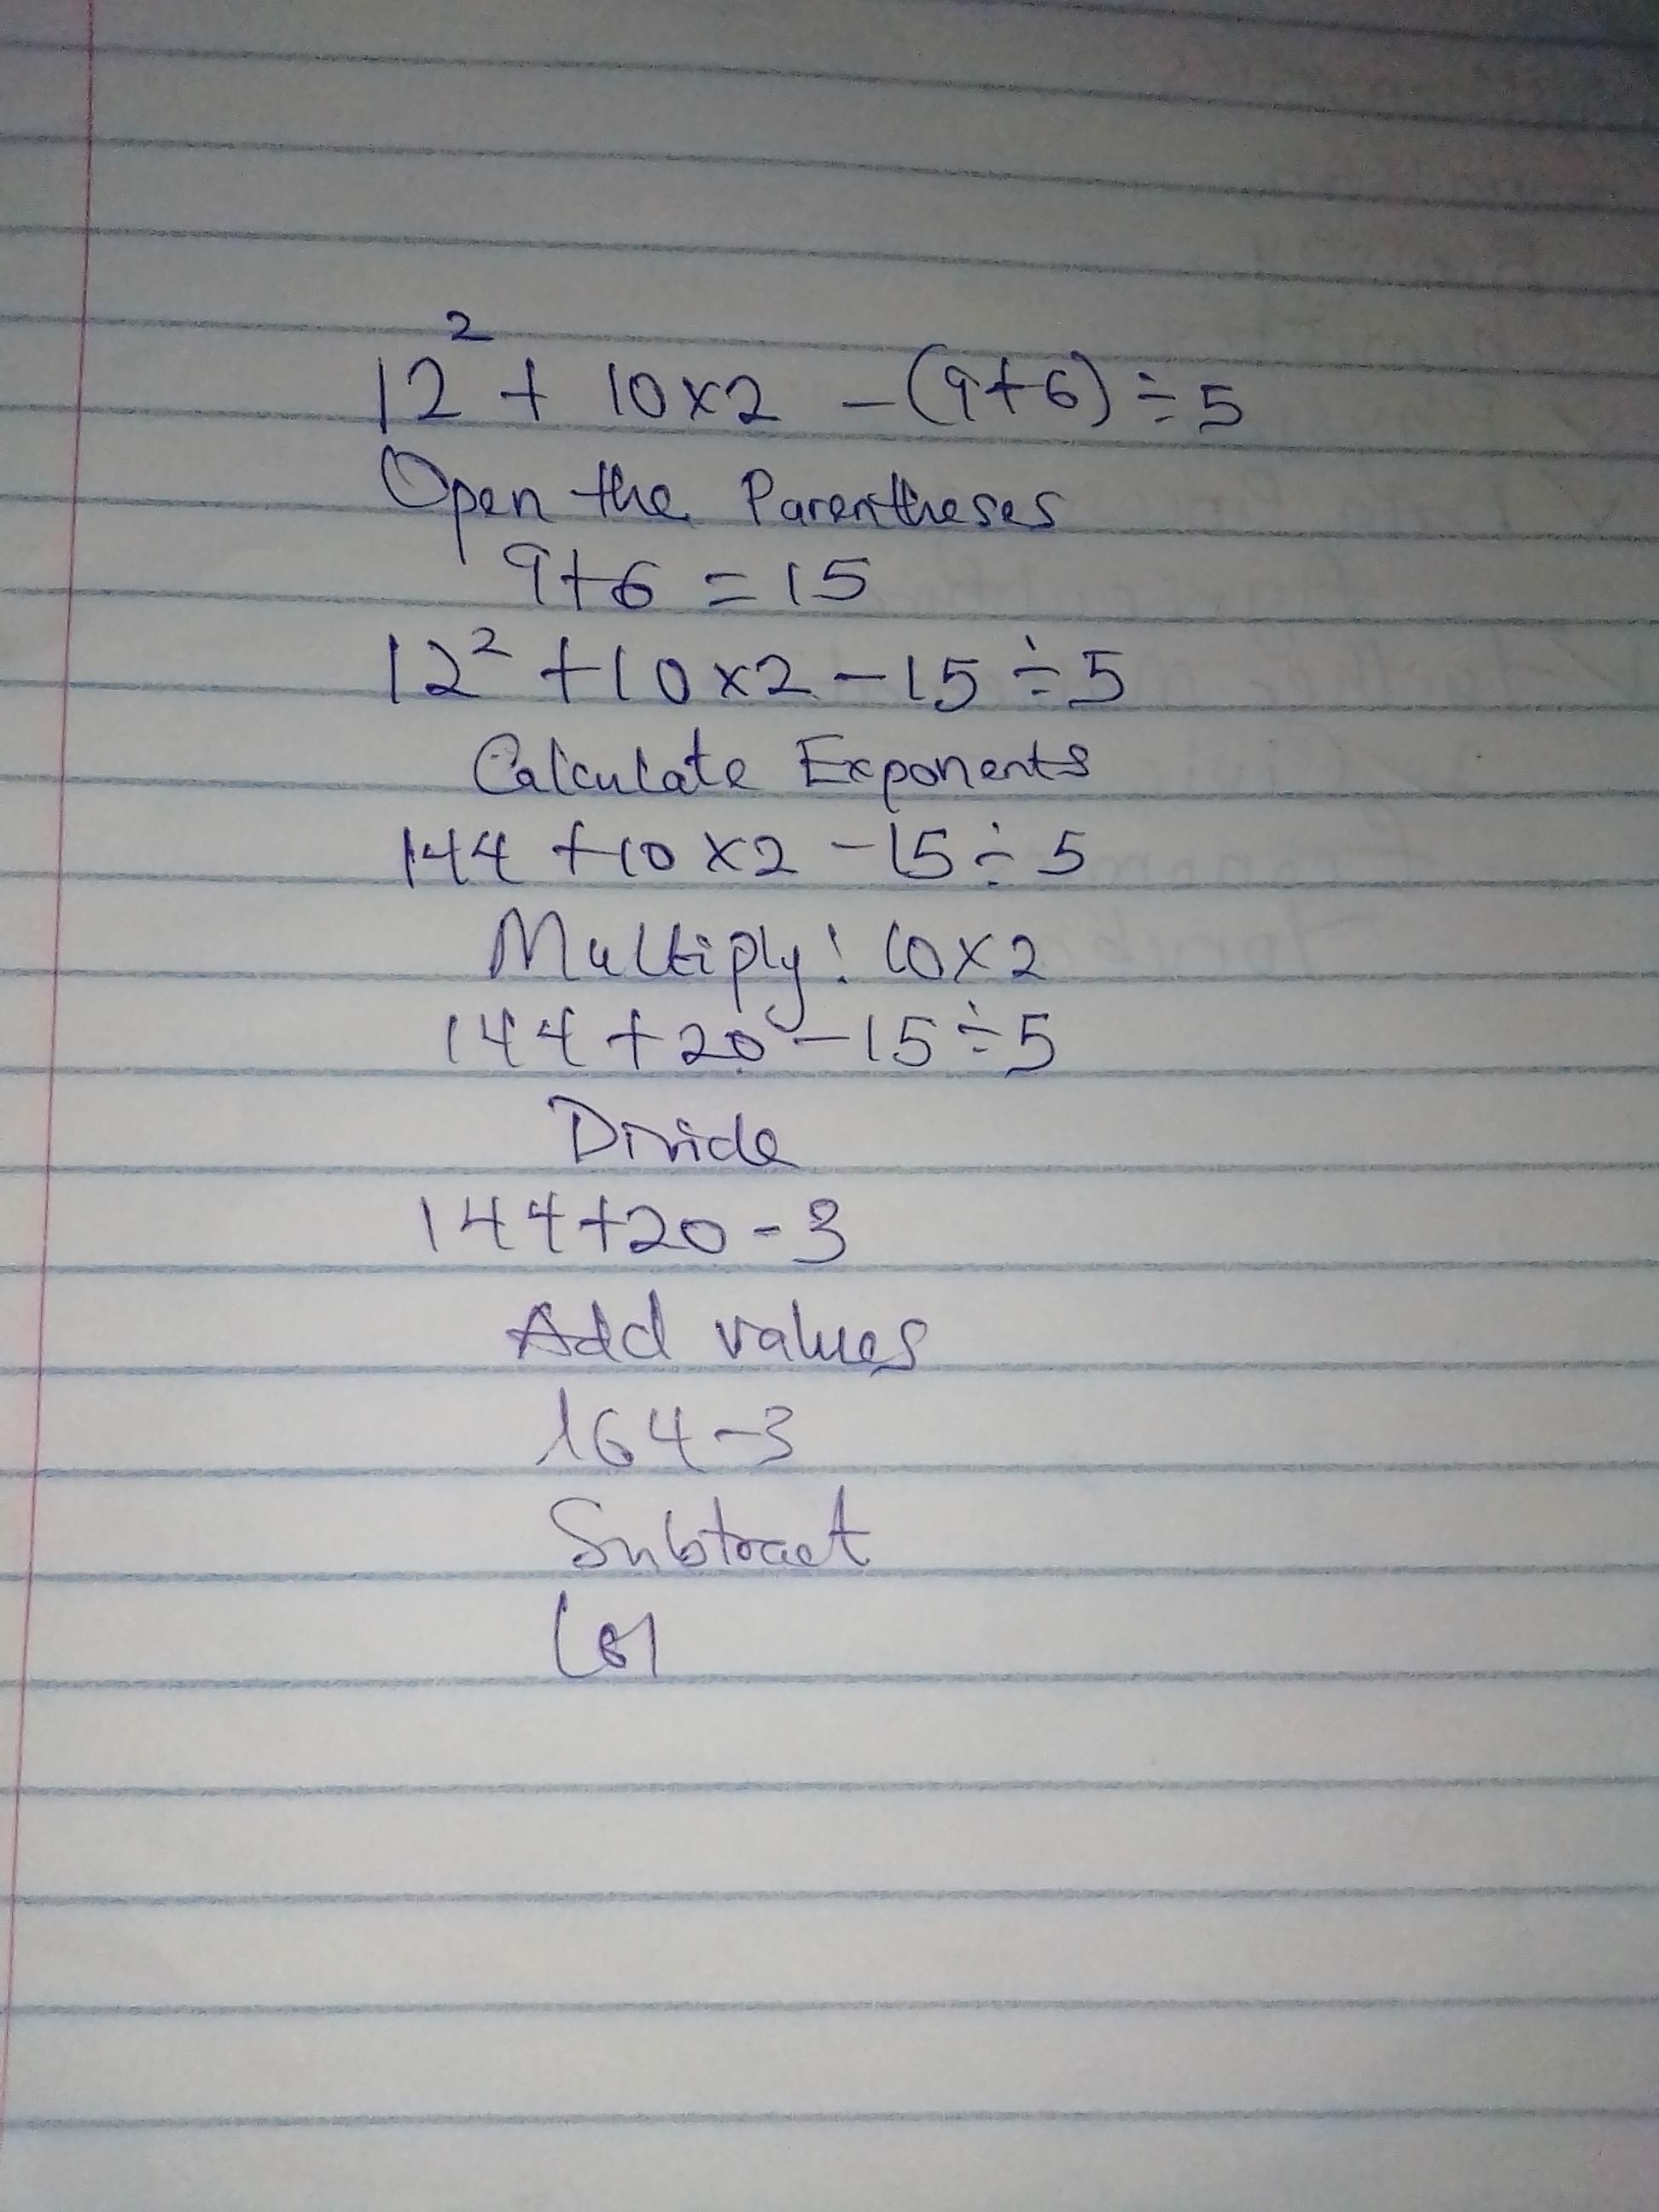 12² + 10×2 - (9+6) ÷ 5
Open the Parentheses
9+6 = 15
12² + 10×2 - 15 ÷ 5
Calculate Exponents
144 + 10 × 2 - 15 ÷ 5
Multiply: 10×2
144 + 20 - 15 ÷ 5
Divide
144+20-3
Add values
164-3
Subtract
161